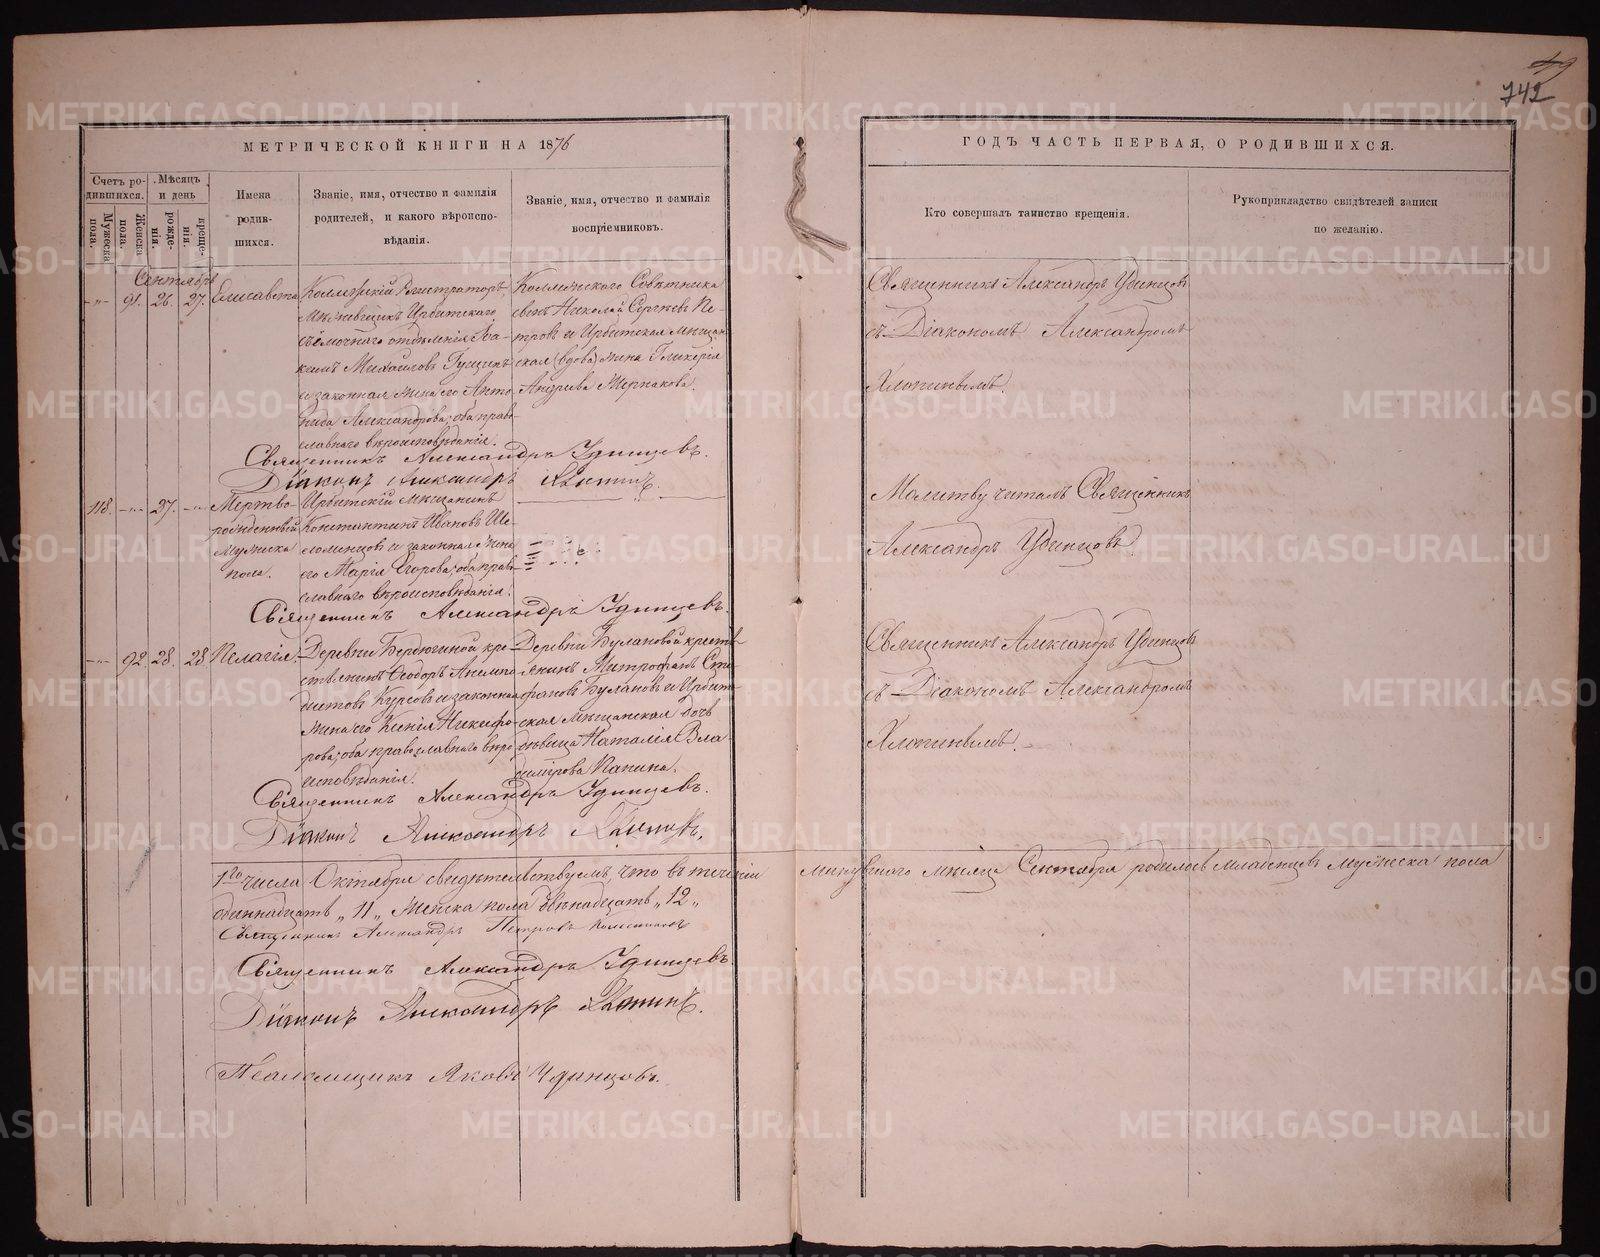 49
742
МЕТРИЧЕСКОЙ КНИГИ НА 1876
ГОДЪ ЧАСТЬ ПЕРВАЯ, О РОДИВШИХСЯ.
Счетъ родившихся.
Мужеска пола.
Женска пола.
Мѣсяцъ и день
рожденія.
крещенія.
Имена родившихся.
Званіе, имя, отчество и фамилія
родителей, и какого вѣроиспо-
вѣданія.
Званіе, имя, отчество и фамилія
воспріемниковъ.
Кто совершалъ таинство крещенія.
Рукоприкладство свидѣтелей записи
по желанію.
Сентябрь
91. 26. 27. Елисавета
Коллежскій Регистраторъ,
Ирбитскаго
отдѣленія
кимъ Михаиловъ Гущинъ
и законная жена его Анто-
нида Александрова, оба право-
славнаго вѣроисповѣданія.
Коллежскаго Совѣтника
сынъ Николай Сергѣевъ Пе-
тровъ и Ирбитская мѣщан-
ская (вдова) жена Гликерія
Андреева
Священникъ Александръ Удинцовъ
съ Діакономъ Александромъ
Хлопинымъ.
Священникъ Александръ Удинцевъ.
Діаконъ Александръ
118. 27.
Мертво-
рожденный
мужеска
пола.
Ирбитскій мѣщанинъ
Константинъ Ивановъ Ше-
ломенцовъ и законная жена
его Марія Егорова, оба право-
славнаго вѣроисповѣданія.
Молитву читалъ Священникъ
Александръ Удинцовъ.
Священникъ Александръ Удинцевъ.
92. 28. 28. Пелагія.
Деревни Бердюгиной кре-
стьянинъ Ѳеодоръ
Курсовъ и законная
жена его Ксенія Никифо-
рова, оба православнаго вѣро-
исповѣданія.
Деревни Булановой кресть-
янинъ Митрофанъ Сте-
фановъ Булановъ и Ирбит-
ская мѣщанская дочь
дѣвица Наталія Вла-
димірова Папина.
Священникъ Александръ Удинцовъ
съ Діакономъ Александромъ
Хлопинымъ.
Священникъ Александръ Удинцевъ.
Діаконъ Александръ
1го числа Октября свидѣтельствуемъ, что въ теченіи минувшаго мѣсяца Сентября родилось младенцевъ мужеска пола
одиннадцать „11„ женска пола двѣнадцать „12„
Священникъ Александръ Петровъ
Священникъ Александръ Удинцевъ.
Діаконъ Александръ
Псаломщикъ Яковъ Удинцовъ.
METRIKI.GASO-URAL.RU